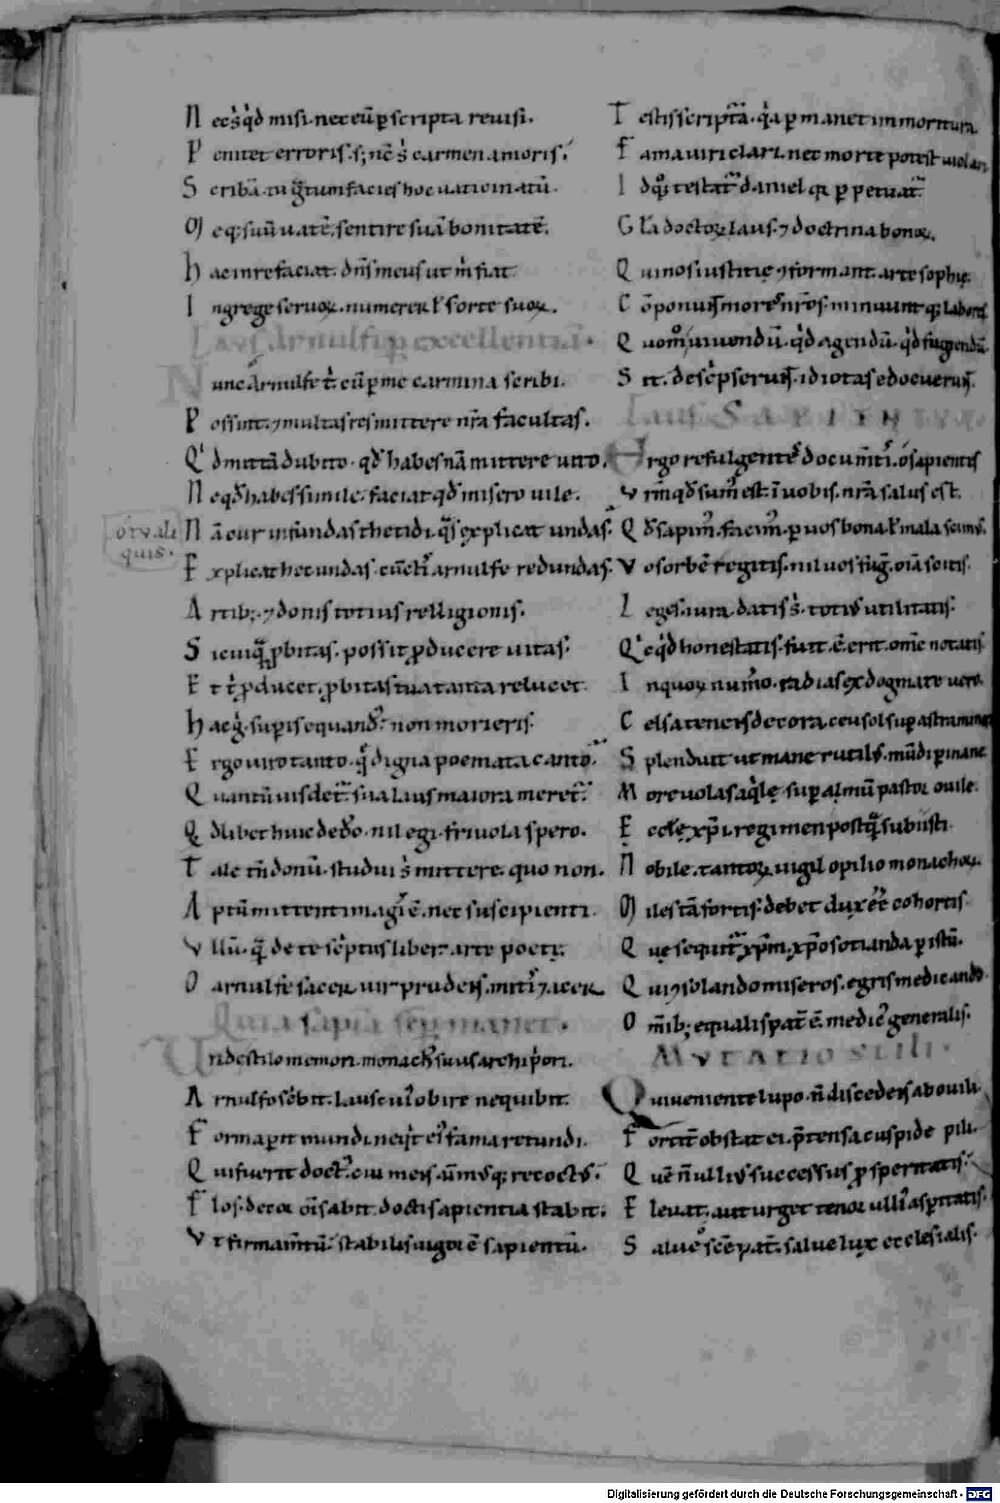 N ec s̄ qd misi. nec eū p scripta reuisi.
P enitet erroris. s; nc̄ s̄ carmen amoris.
S cribā. tu facies hoc uaticinatū.
M eq; suū uatē. sentire suā bonitatē.
H ac in re faciat. dn̄s meus ut m̄ fiat
I n grege seruoꝝ. numerer ł sorte suoꝝ.
Laus Arnulfi excellentia.
N unc Arnulfe t̄. cū p me carmina scribi.
P ossint. ⁊ multas res mittere nr̄a facultas.
Q d mittā dubito. qd habes nā mittere uito.
N eq; qd habes simile. faciat qd misero uile.
N ā cur infundas thetidi. qs explicat undas.
E xplicat hec undas. arnulfe redundas.
A rtib; ⁊ donis totius religionis.
S i cuiq̄ ꝓbitas. possit ꝓducere uitas.
E t t̄ ꝓducet. ꝓbitas tua tanta relucet.
H ac supis equand. non morieris.
E rgo uiro tanto. q̄ digna poemata canto.
Q uantū uis det. sua laus maiora meret.
Q dlibet huic dedo. nil egi friuola spero.
T ale tn̄ donū. studui s̄ mittere. quo non.
A ptū mittenti magis ē. nec suscipienti.
V llū. q̄ de te scptus liber. arte poete.
O arnulfe sacer uir prudens. mitis ⁊ acer
Quia sapīa semp manet.
V nde stilo memori. monachus suus archipori.
A rnulfo scbit. laus cuius obire nequibit.
F orma perit mundi. neqit ei fama retundi.
Q ui fuerit doctus. cum meis recoctus.
F los. decor ois abit. docti sapientia stabit.
V t firmamtū. stabilis uigor ē sapientū.
T estis scripta. qa p manet inmoritura
F ama uiri clari. nec morte potest uiolari
I d testat daniel qi p petuat
G la doctoꝝ laus. ⁊ doctrina bonoꝝ.
Q ui nos iustitię ⁊ formant. arte sophię.
C ōponunt mores nros. minuunt q; labores
Q uom uiuendū. qd agendū. qd fugiendū.
S it. de scp seruis. idiotas edocuerunt.
Laus SAPIENTUM
E rgo refulgentes documti. o sapientis
V rm qd sum est. ī uobis. nr̄a salus est.
Q d sapim. facim. p uos bona. ł mala scimus.
V os orbē regitis. nil uos fug. oīa scitis.
L eges. iura. datis s̄. totius utilitatis.
Q cqd honestatis. fuit. ē. erit. omē notatis
I n quoꝝ numo. radias ex dogmate uero.
C elsa tenens decora. ceu sol sup astra
S plenduit ut mane rutilus. mūdi p inane
M ore uolas aqlę. sup almū pastor ouile.
E cclę xpi. regimen postq̄ subisti
N obile. tantoꝝ uigil opilio monachoꝝ.
M iles tā fortis. debet dux eē cohortis
Q uę sequit xpm. xpo socianda p istū.
Q ui ⁊ solando miseros. egris medicando
O mib; equalis pat ē. medicus generalis.
MUTATIO STILI.
Q ui ueniente lupo. n̄ discedens ab ouili.
F ortit obstat ei. ptensa cuspide pili.
Q uē n̄ ullius successus ꝓsperitatis.
E leuat. aut urget tenor ullius aspitatis.
S alue sc̄e pat. salue lux ecclesialis.